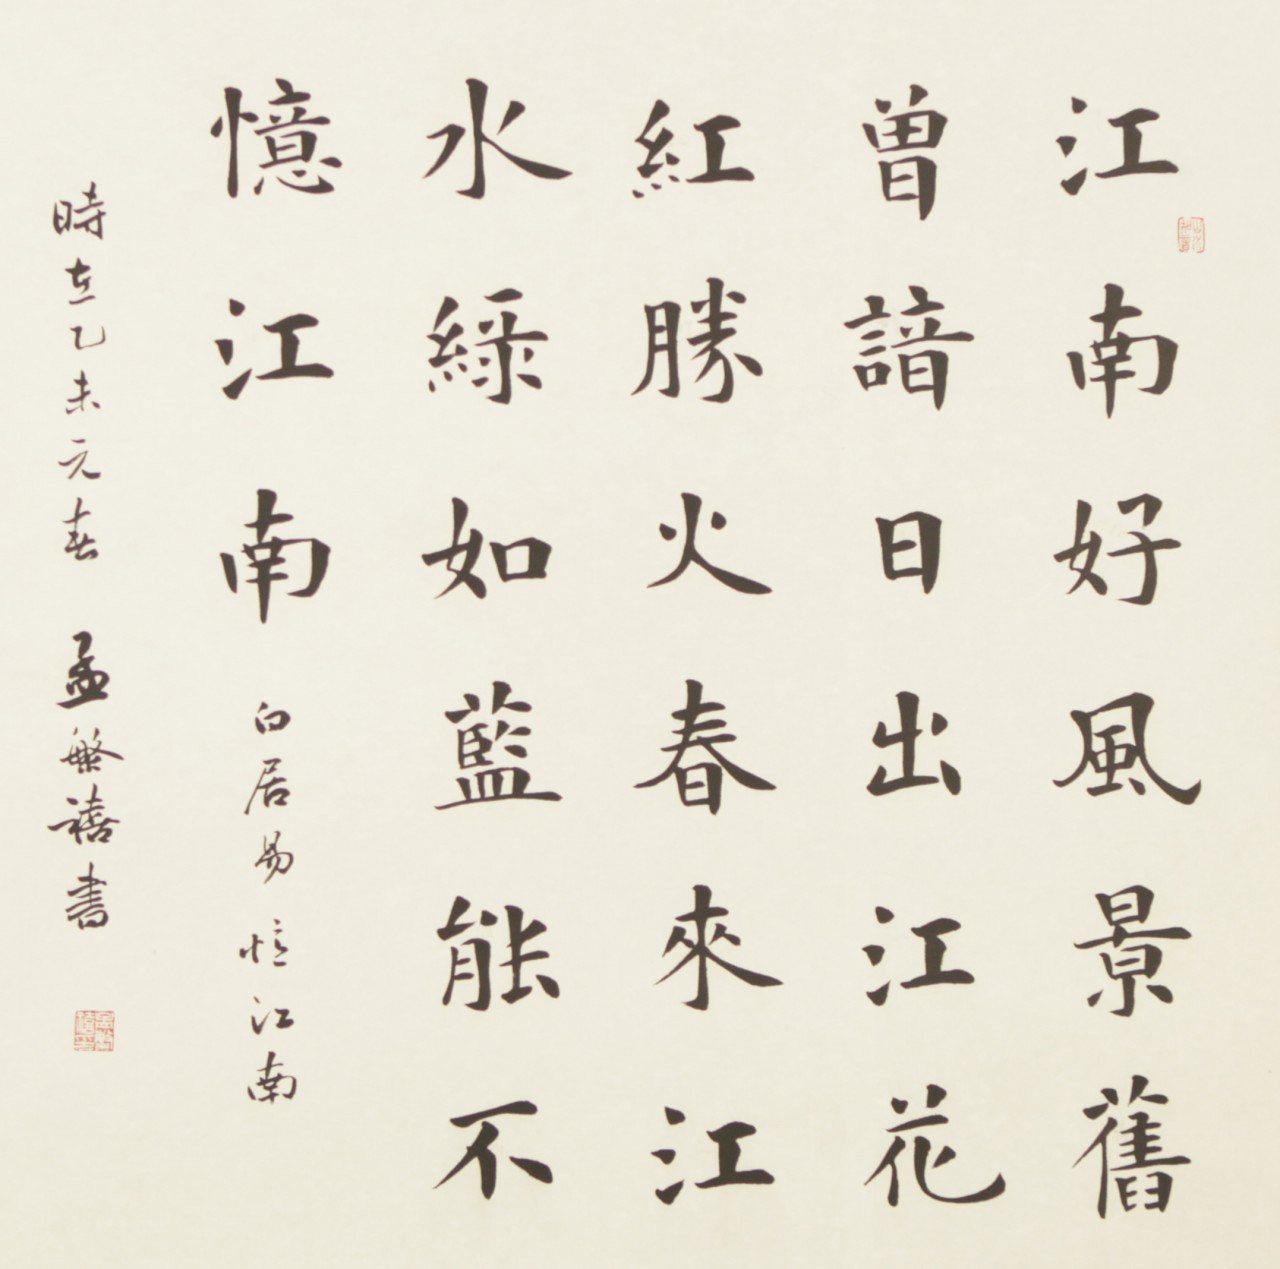 江南好風景舊
曾諳日出江花
紅勝火春來江
水綠如藍能不
憶江南 白居易憶江南
時在乙未元春 孟繁禧書